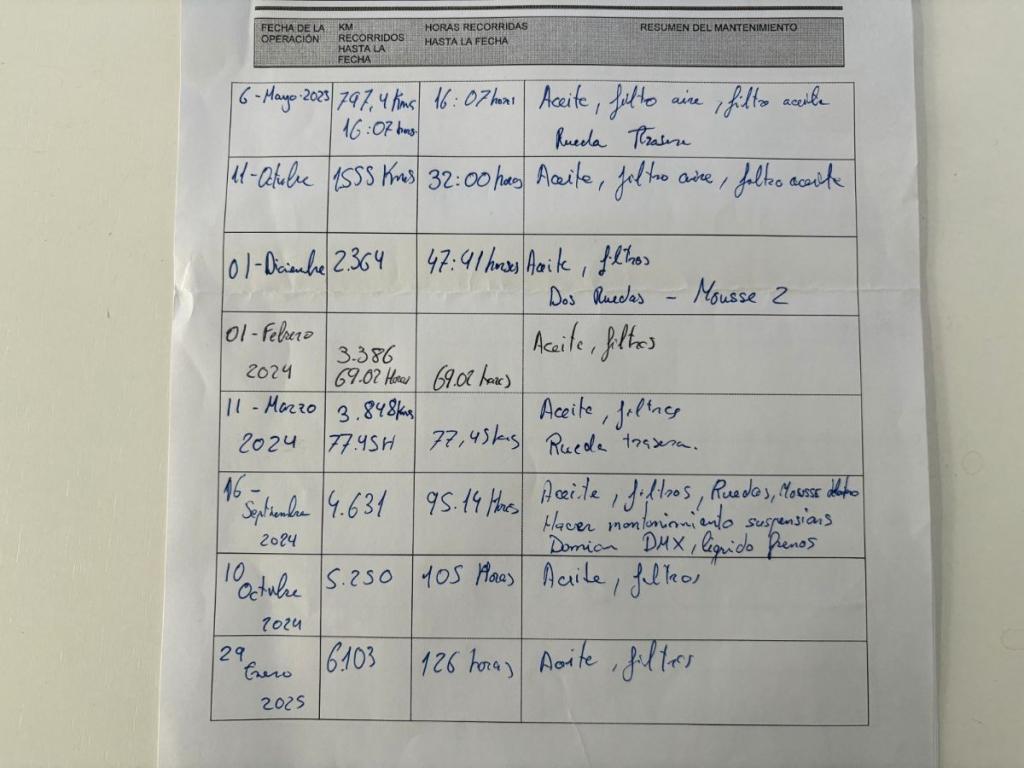 FECHA DE LA OPERACIÓN
KM RECORRIDOS HASTA LA FECHA
HORAS RECORRIDAS HASTA LA FECHA
RESUMEN DEL MANTENIMIENTO
6-Mayo-2023 797,4 Kms 16:07 horas Aceite, filto aire, filtro aceite
16:07 hrs Rueda Trasera
11-Octubre 1555 Kms 32:00 horas Aceite, filtro aire, filtro aceite
01-Diciembre 2.364 47:41 horas Aceite, filtros
Dos Ruedas - Mousse 2
01-Febrero Aceite, filtros
2024 3.386
69.02 Horas 69.02 horas
11-Marzo 3.848 kms Aceite, filtros
2024 77.45H 77,45 Rueda trasera.
16- Aceite, filtros, Ruedas, Mousse
Septiembre 4.631 95.14 Horas Hacer suspensions
2024 DMX, líquido frenos
10 5.250 105 Horas Aceite, filtros
Octubre
2024
29 6103 126 horas Aceite, filtros
Enero
2025